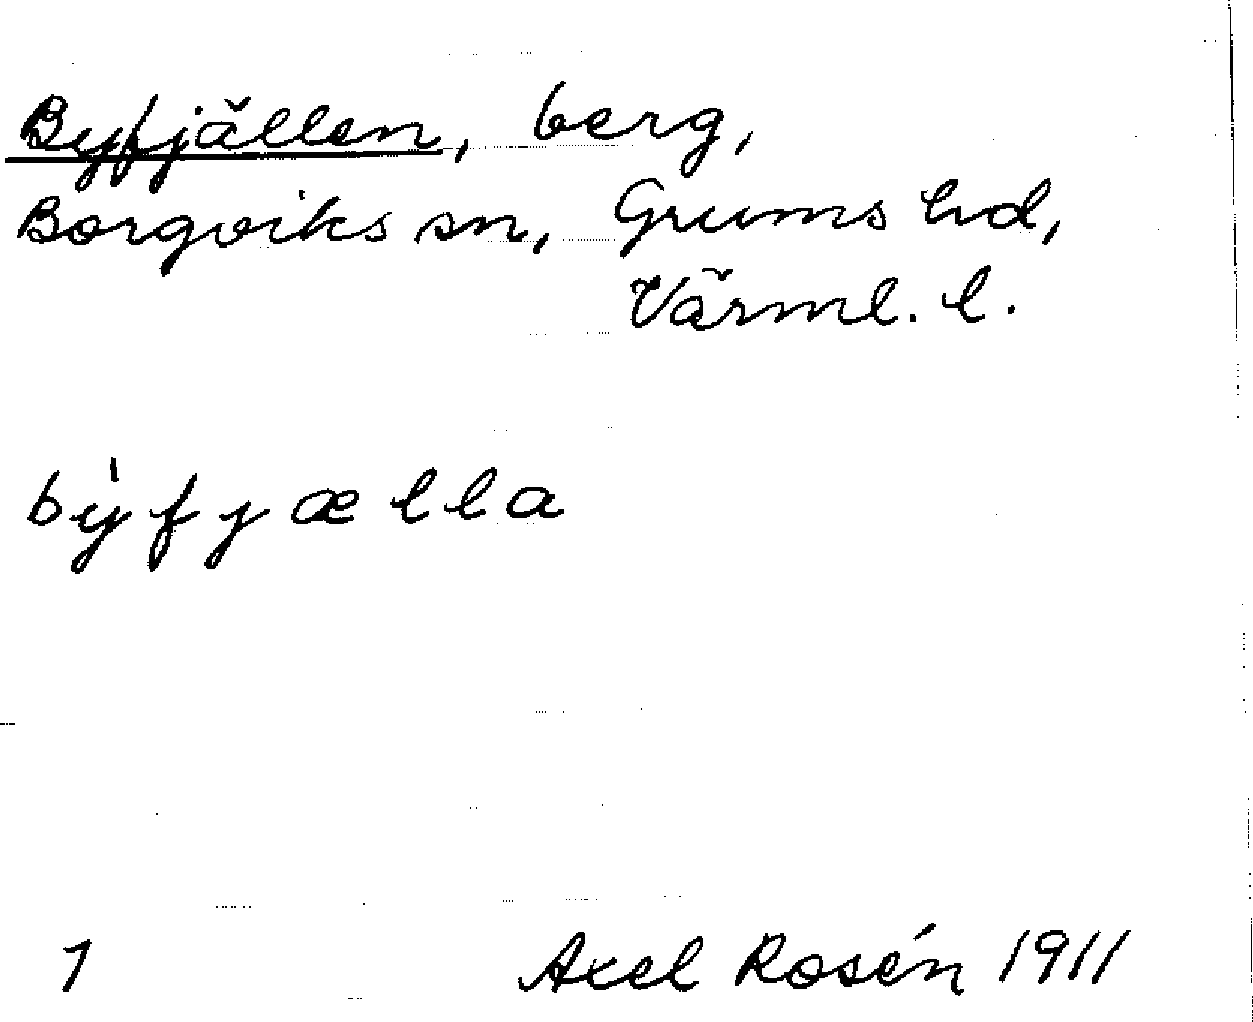 Byfjällen, berg,
Borgviks sn, Grums hd,
Värml. l.
by̍fjælla
1 Axel Rosén 1911